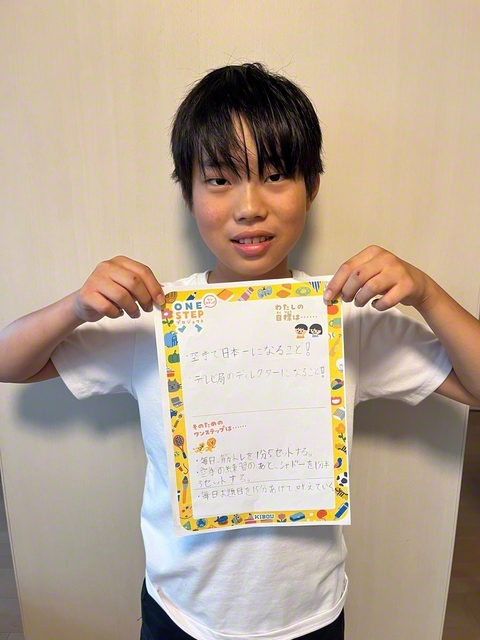 ONE
STEP
プロジェクト
わたしの
目標は……
・空手で日本一になること!
・テレビ局のディレクターになること!!
そのための
ワンステップは……
・毎日、筋トレを1分5セットする。
・空手の練習のあと、シャドーを1分半
3セットする。
・毎日お題目を15分あげて叶えていく
KIBOU